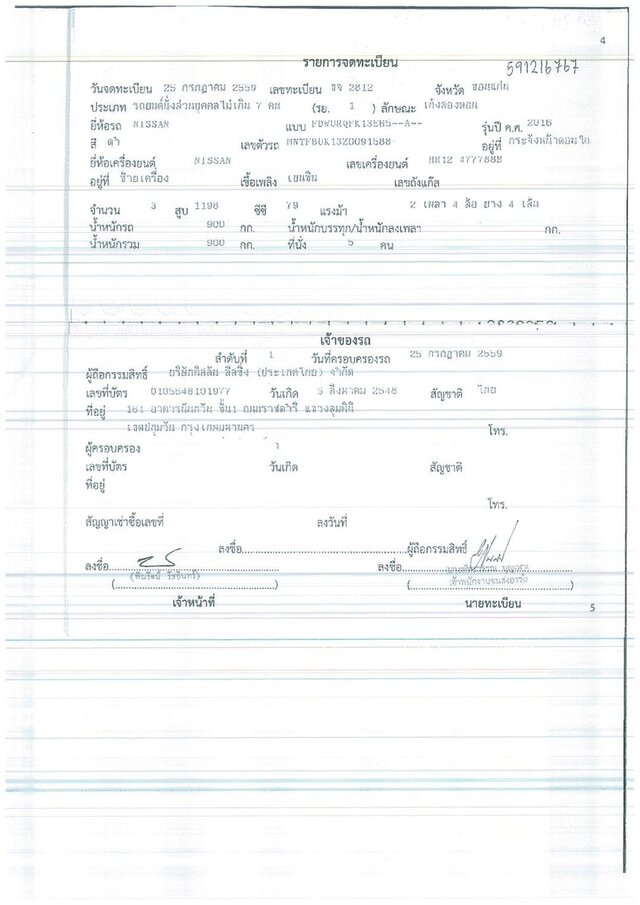 4
รายการจดทะเบียน
591216767
วันจดทะเบียน 25 กรกฎาคม 2559 เลขทะเบียน 2812 จังหวัด ขอนแก่น
ประเภท รถยนต์นั่งส่วนบุคคลไม่เกิน 7 คน (รย. 1 ) ลักษณะ เก๋งสองตอน
ยี่ห้อรถ NISSAN แบบ รุ่นปี ค.ศ. 2016
สี ดำ เลขตัวรถ อยู่ที่
ยี่ห้อเครื่องยนต์ NISSAN เลขเครื่องยนต์ HR12
อยู่ที่ ซ้ายเครื่อง เชื้อเพลิง เบนซิน เลขถังแก๊ส
จำนวน 3 สูบ 1198 ซีซี 79 แรงม้า 2 เพลา 4 ล้อ ยาง 4 เส้น
น้ำหนักรถ 900 กก. น้ำหนักบรรทุก/น้ำหนักลงเพลา กก.
น้ำหนักรวม 900 กก. ที่นั่ง 5 คน
เจ้าของรถ
ลำดับที่ 1 วันที่ครอบครองรถ 25 กรกฎาคม 2559
ผู้ถือกรรมสิทธิ์ บริษัทนิสสัน ลีสซิ่ง (ประเทศไทย) จำกัด
เลขที่บัตร 0105548101977 วันเกิด 5 สิงหาคม 2548 สัญชาติ ไทย
ที่อยู่ 161 อาคารนันทวัน ชั้น1 ถนนราชดำริ แขวงลุมพินี
เขตปทุมวัน กรุงเทพมหานคร โทร.
ผู้ครอบครอง
เลขที่บัตร วันเกิด สัญชาติ
ที่อยู่
โทร.
สัญญาเช่าซื้อเลขที่ ลงวันที่
ลงชื่อ ผู้ถือกรรมสิทธิ์
ลงชื่อ ลงชื่อ
เจ้าพนักงานขนส่งอาวุโส
เจ้าหน้าที่ นายทะเบียน
5